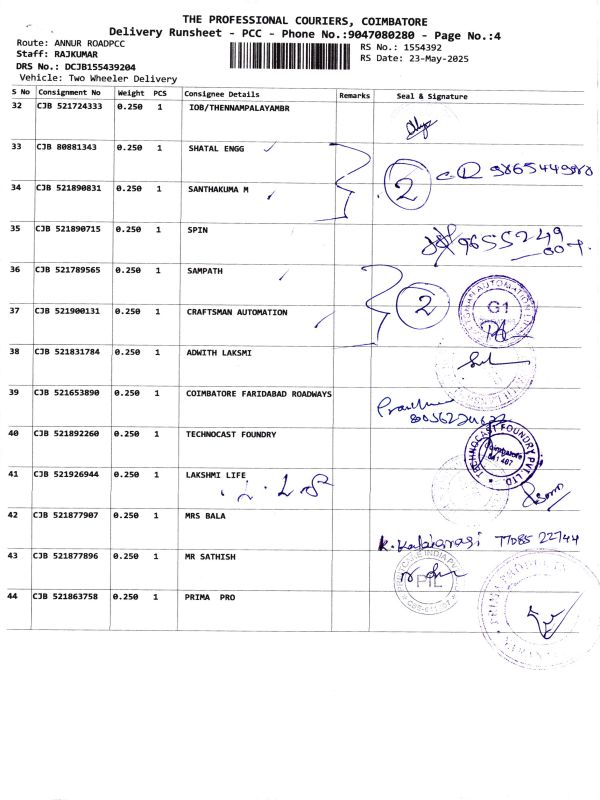 THE PROFESSIONAL COURIERS, COIMBATORE
Delivery Runsheet - PCC - Phone No.:9047080280 - Page No.:4
Route: ANNUR ROADPCC
Staff: RAJKUMAR
DRS No.: DCJB155439204
Vehicle: Two Wheeler Delivery
RS No.: 1554392
RS Date: 23-May-2025
S No Consignment No Weight PCS Consignee Details Remarks Seal & Signature
32 CJB 521724333 0.250 1 IOB/THENNAMPALAYAMBR
33 CJB 80881343 0.250 1 SHATAL ENGG
34 CJB 521890831 0.250 1 SANTHAKUMA M
2
35 CJB 521890715 0.250 1 SPIN
36 CJB 521789565 0.250 1 SAMPATH
37 CJB 521900131 0.250 1 CRAFTSMAN AUTOMATION
2
G1
38 CJB 521831784 0.250 1 ADWITH LAKSMI
39 CJB 521653890 0.250 1 COIMBATORE FARIDABAD ROADWAYS
40 CJB 521892260 0.250 1 TECHNOCAST FOUNDRY
TECHNOCAST FOUNDRY PVT. LTD.
Coimbatore
641 407
41 CJB 521926944 0.250 1 LAKSHMI LIFE
42 CJB 521877907 0.250 1 MRS BALA
43 CJB 521877896 0.250 1 MR SATHISH
PIL
44 CJB 521863758 0.250 1 PRIMA PRO